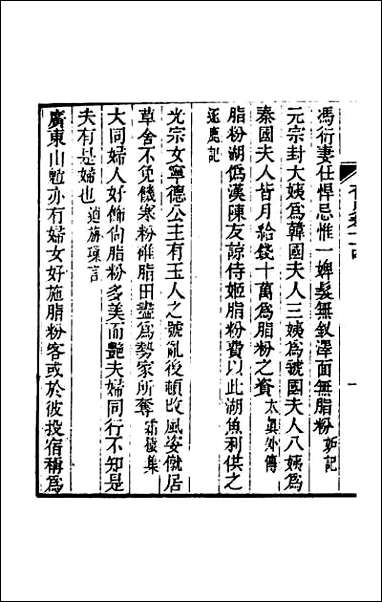 馮衍妻任悍忌惟一婢髮無釵澤面無脂粉 妒記
元宗封大姨為韓國夫人三姨為虢國夫人八姨為
秦國夫人皆月給錢十萬為脂粉之資 太真外傳
脂粉湖偽漢陳友諒侍姬脂粉費以此湖魚利供之
逐鹿記
光宗女寧德公主有玉人之號亂後頓改風姿僦居
草舍不免饑寒粉碓脂田盡為勢家所奪 霜猨集
大同婦人好飾尚脂粉多美而艷夫婦同行不知是
夫有是婦也 道旅璅言
廣東山魈亦有婦女好施脂粉客或於彼投宿稱為